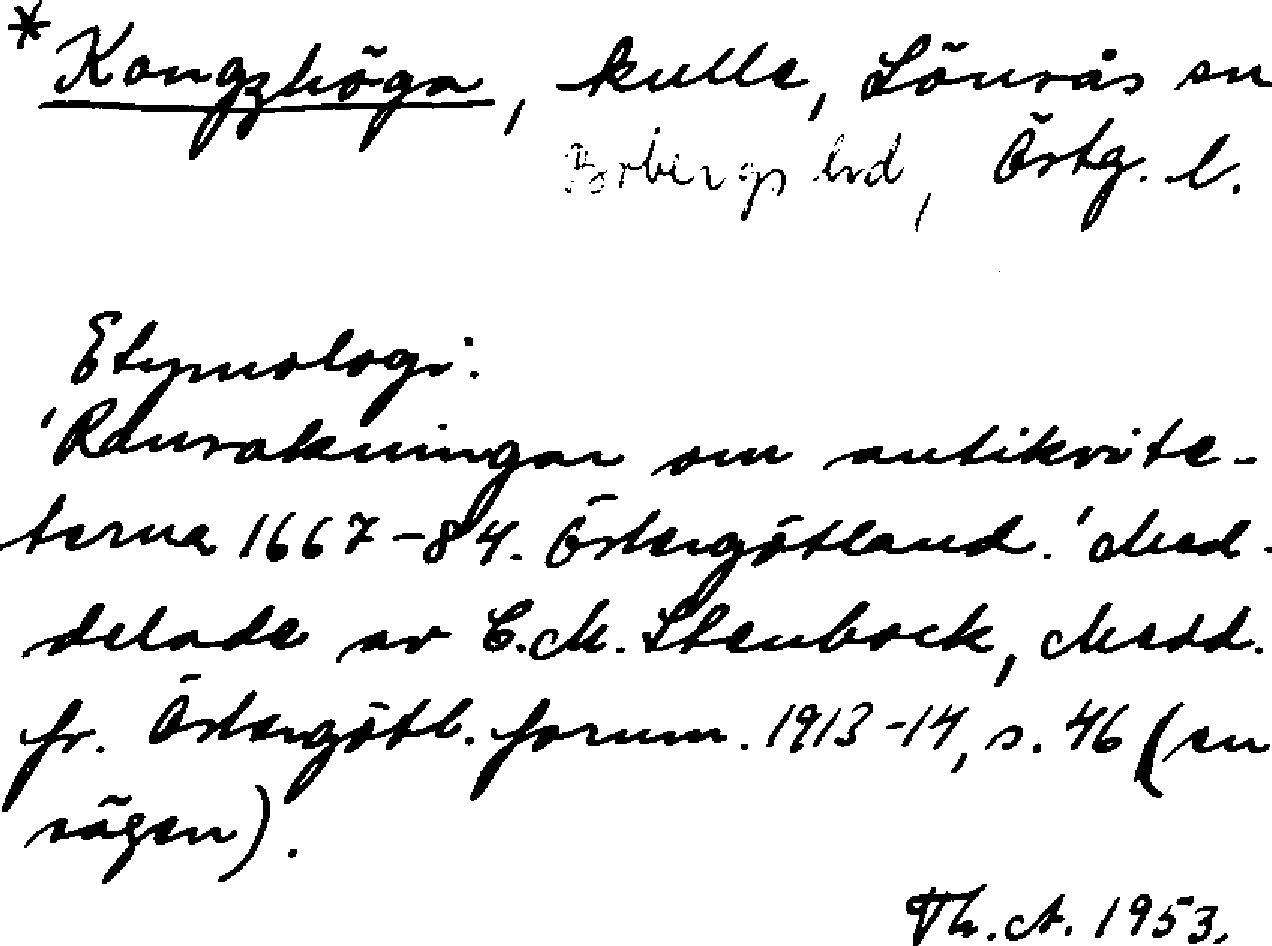 * Kongzhöga, kulle, Lönsås sn
Bobergs hd, Östg. l.
Etymologi:
'Rannsakningar om antikvite-
terna 1667-84. Östergötland.' Med-
delade av C.M. Stenbock, Medd.
fr. Östergötl. fornm. 1913-14, s. 46 (en
sägen).
Th. A. 1953.